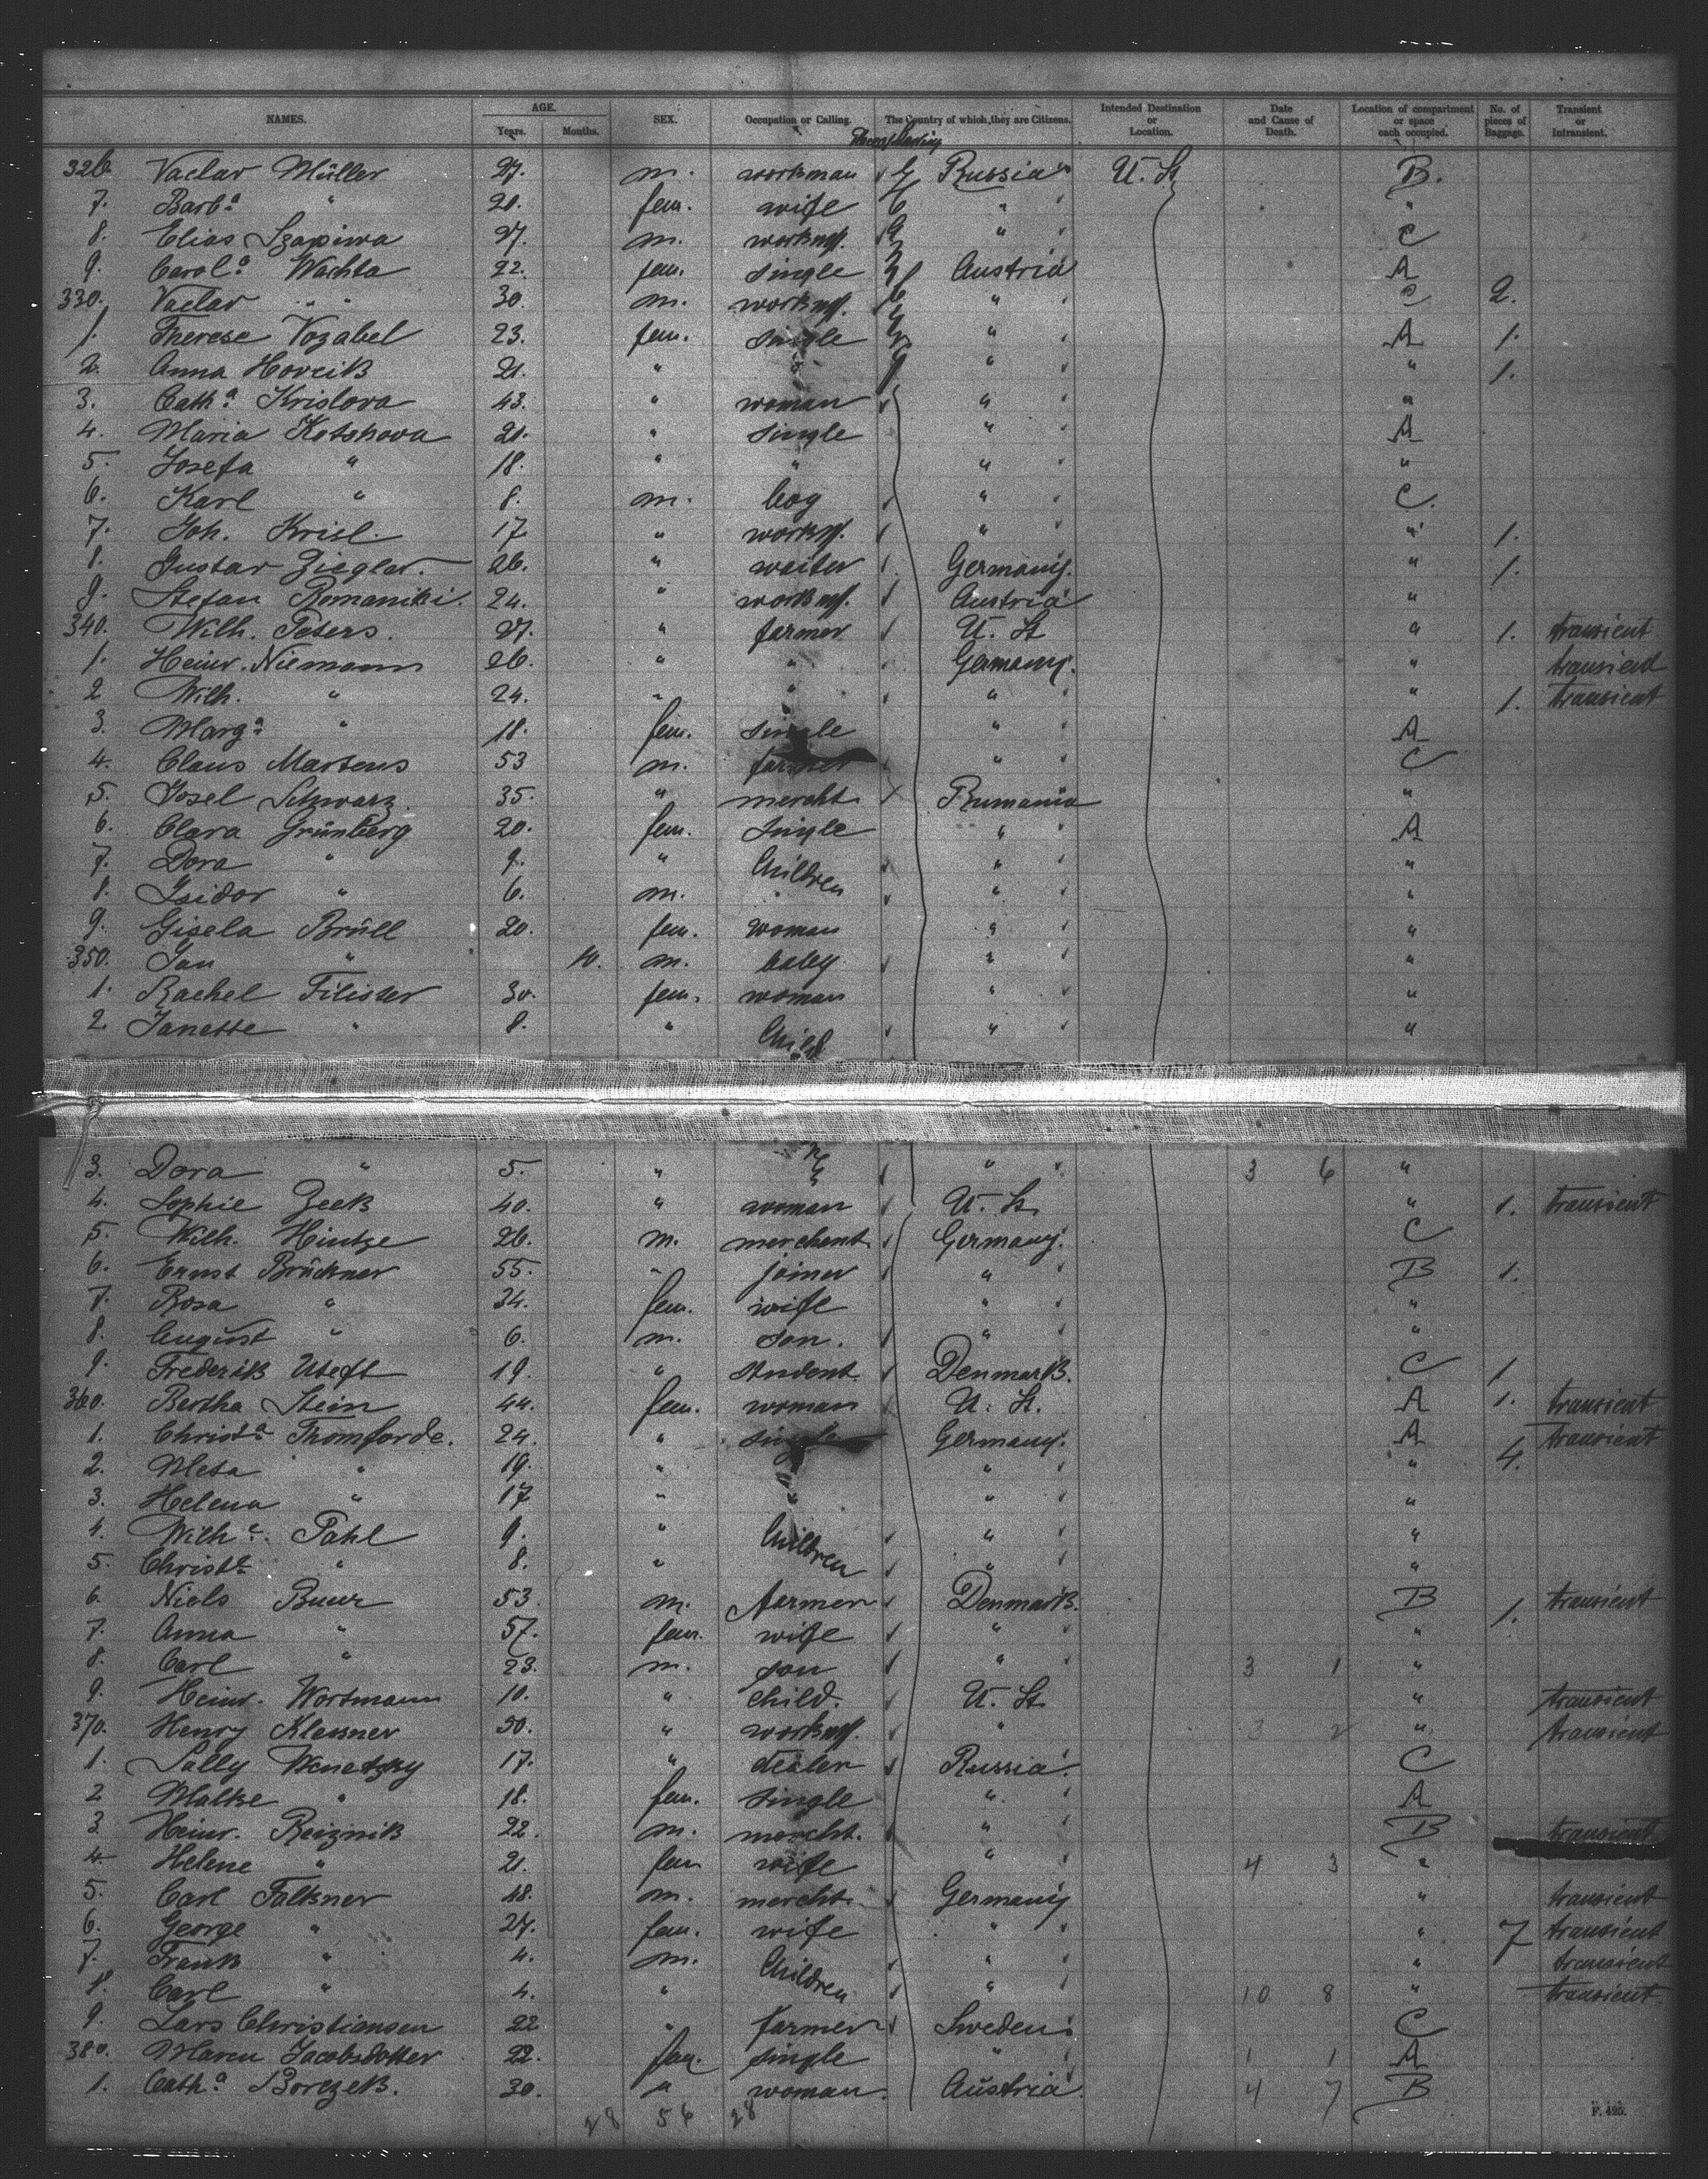 NAMES. AGE. Years. Months. SEX. Occupation or Calling. The Country of which they are Citizens. Intended Destination or Location. Date and Cause of Death. Location of compartment or space each occupied. No. of pieces of Baggage. Transient or Intransient.
326. Vaclav Müller 27. m. workman Russia U. St B.
7. Barb.a " 21. fem. wife " "
8. Elias Szapiwa 27. m. workm. " C
9. Carol.a Wachta 22. fem. single Austria A
330. Vaclav " 30. m. workm. " C 2.
1. Therese Vozabel 23. fem. single " A 1.
2. Anna Horcik 21. " " " " 1.
3. Cath.a Krislova 43. " woman " "
4. Maria Kotshova 21. " single " A
5. Josefa " 18. " " " "
6. Karl " 8. m. boy " C.
7. Joh. Krisl. 17 " workm. " " 1.
8. Gustav Ziegler. 26. " waiter Germany. " 1.
9. Stefan Romaniki. 24. " workm. Austria "
340. Wilh. Peters. 27. " farmer U. St " 1. transient
1. Heinr. Niemann 26. " " Germany. " transient
2 Wilh. " 24. " " " " 1. transient
3. Marg.a " 18. fem. single " A
4. Claus Martens 53 m. farmer " C
5. Josel Schwarz. 35. " mercht. Rumania "
6. Clara Grünberg 20. fem. single " A
7. Dora " 9. " Children " "
8. Isidor " 6. m. " "
9. Gisela Brüll 20. fem. woman " "
350. Jan " 10. m. baby " "
1. Rachel Filister 30. fem. woman " "
2. Janette " 8. " Child " "
3. Dora " 5. " " " 3 6 "
4. Sophie Zeek 40. " woman U. St. " 1. transient
5. Wilh. Hintze 26. m. merchant Germany. C
6. Ernst Brückner 55. " joiner " B 1.
7. Rosa " 34. fem. wife " "
8. August " 6. m. son. " "
9. Frederik Uteft 19. " student. Denmark. C 1
360. Bertha Stein 44. fem. woman U. St. A 1. transient
1. Christ.a Thomforde. 24. " single Germany. A 4. transient
2. Meta " 19. " " " "
3. Helena " 17 " " " "
4. Wilh.e Pahl 9. " Children " "
5. Christ.e " 8. " " "
6. Niels Buur 53. m. farmer Denmark. B 1. transient
7. Anna " 57. fem. wife " "
8. Carl " 23. m. son " 3 1 "
9. Heinr. Wortmann 10. " child. U. St. " transient
370. Henry Klessner 50. " workm. " 3 2 " transient
1. Sally Wenetzky 17. " dealer Russia. C
2 Malke " 18. fem. single " A
3. Heinr. Reiznik 22. m. mercht. " B transient
4. Helene " 21. fem wife " 4 3 "
5. Carl Falkner 48. m. mercht. Germany " transient
6. George " 27. fem. wife " " 7 transient
7. Frank " 4. m. Children " " transient
8. Carl " 4. " " 10 8 " transient
9. Lars Christiansen 22 " farmer Sweden. C
380. Maren Jacobsdotter 22. fem. single " 1 1 A
1. Cath.a Borczek. 30. " woman. Austria. 4 7 B
28 56 28
F. 425.